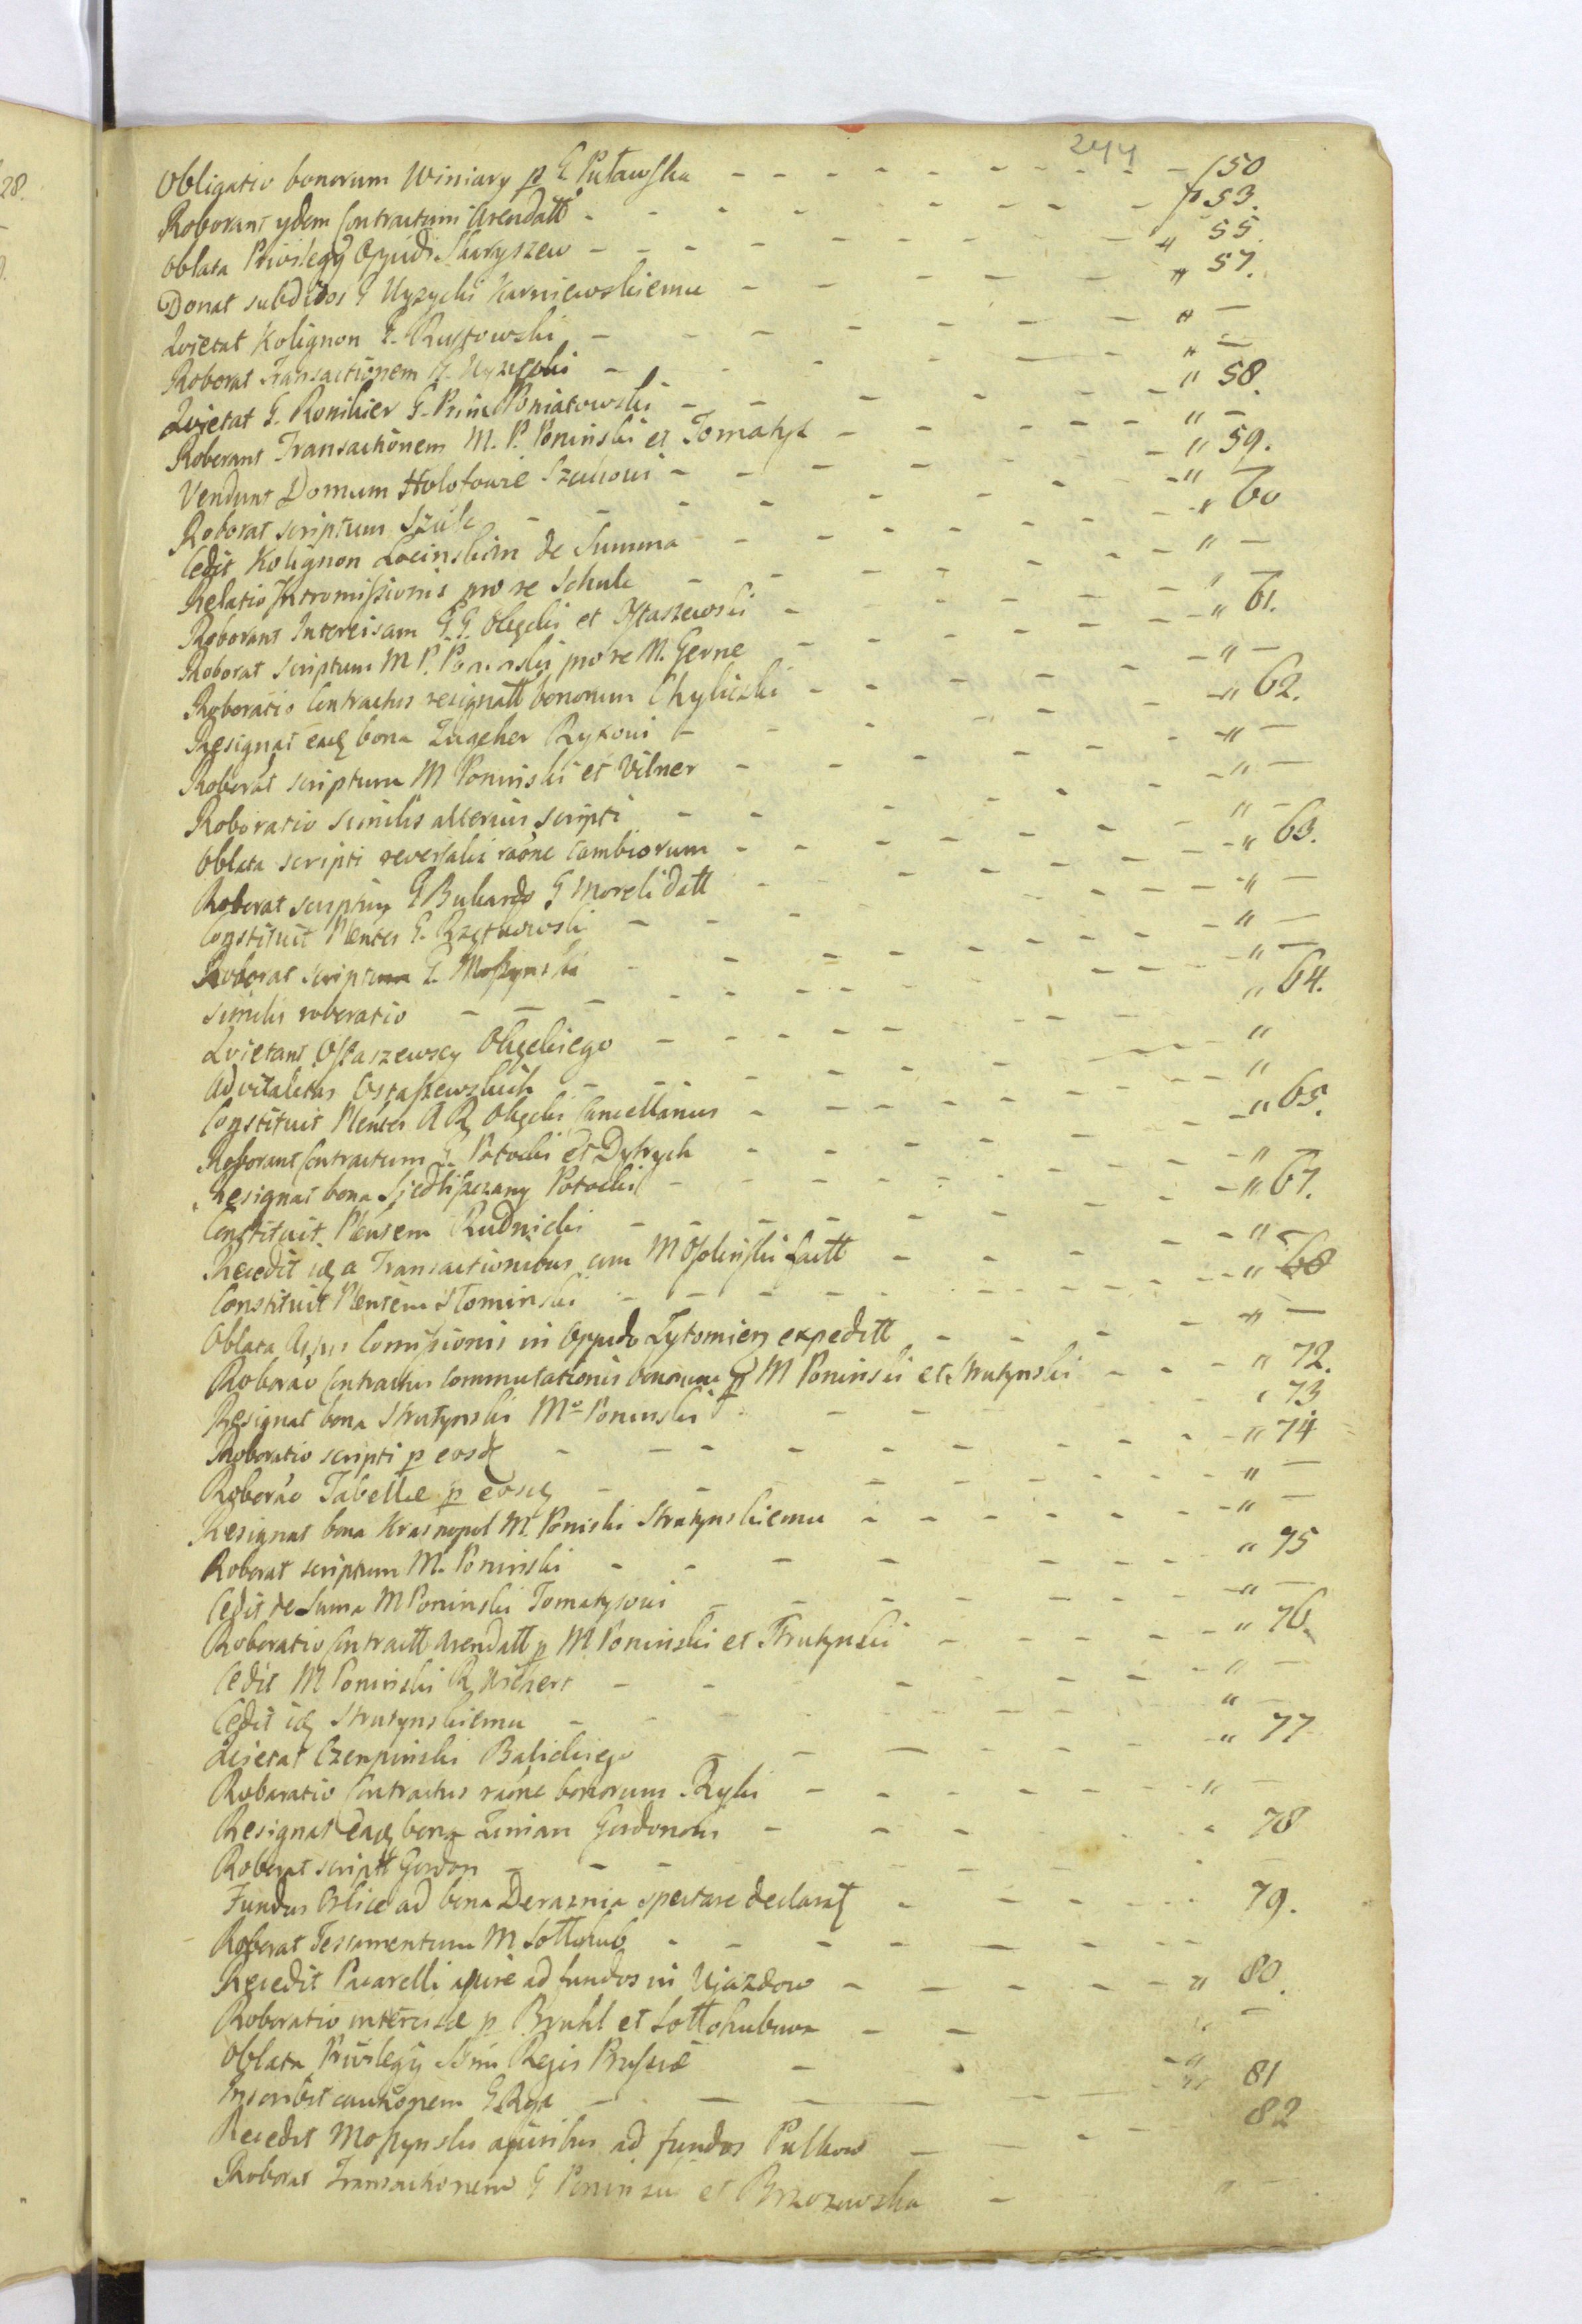 244
Obligatio bonorum Winiary p G Puławska - - - - - - - - - - 150
Roborant ydem Contractum Arendatt - - - - - - - - p 53.
Oblata Privilegy Oppidi Skaryszew - - - - - - - - " 55.
Donat subditos G Uyzycki Karniewskiemu - - - - - " 57.
Quietat Kolignon G. Rustowski - - - - - - - " —
Roborat Transactionem G. Uyzycki - - - - - - " —
Quietat G. Ronikier G. Princ Poniatowski - - - - - " 58.
Roborant Transactionem M. P. Poninski et Tomatys - - - - - " —
Vendunt Domum Holofowie Szulcowi - - - - - - " 59.
Roborat scriptum Szulc - - - - - - - " —
Cedit Kolignon Locinskim de Summa - - - - - - " 60
Relatio Intromissionis pro re Schulc - - - - - - " —
Roborant Intercisam G.G. Olęzki et Ostaszewski - - - - - " —
Roborat scriptum M P. Poninski pro re M. Gerne - - - - - " 61.
Roboratio Contractus resignatt bonorum Chyliczki - - - - - " —
Resignat eadq bona Zugeher Ryxowi - - - - - - " 62.
Roborat scriptum M Poninski et Vilner - - - - - - " —
Roboratio similis alterius scripti - - - - - - " —
Oblata scripti reversalis raone Cambiorum - - - - - - " —
Roborat scriptum G Buhardo G Moreli datt - - - - - " 63.
Constituit Plentes G. Rzętkowski - - - - - - " —
Roborat scriptum G. Moszynski - - - - - - " —
Similis roboratio - - - - - - - " —
Quietant Ostaszewscy Olęzkiego - - - - - - " 64.
Advitalitas Ostaszewskich - - - - - - "
Constituit Plentes A R Olęzki Cancellarius - - - - - - "
Roborant Contractum G. Potocki et Dytrych - - - - - " 65.
Resignat bona Siedliszczany Potocki - - - - - - " —
Constituit Plentem Rudnicki - - - - - - " 67.
Recedit idq a Transactionibus cum M Osolinski factt - - - - " —
Constituit Plentem Słominski - - - - - - " 68
Oblata Actus Comissionis in Oppido Zytomierz expeditt - - - - " —
Roborao Contractus Commutationis bonorum p M Poninski et Strutynski - - - " 72.
Resignat bona Strutynski Mo Poninski - - - - " 73
Roboratio scripti p eosd - - - - - - - " 74
Roborao Tabelle p eosdq - - - - - - - " —
Resignat bona Krasnopol M. Poniski Strutynskiemu - - - - - " —
Roborat scriptum M. Poninski - - - - - - - " 75
Cedit de Suma M Poninski Tomatysowi - - - - - - " —
Roboratio Contractt Arendatt p M Poninski et Strutynski - - - - " 76.
Cedit M Poninski R Wichert - - - - - - " —
Cedit idq Strutynskiemu - - - - - - " —
Quietat Czenpinski Balickiego - - - - - - " 77
Roboratio Contractus raone bonorum Ryki - - - - - " —
Resignat eadq bona Zeman Gordonowi - - - - - " 78
Roborat scriptt Gordon - - - - - -
Fundus Oslice ad bona Deraznia spectare declarat - - - - - 79.
Roborat Testamentum M Sottohub - - - - - - -
Recedit Pacarelli a jure ad fundos in Ujazdow - - - - - " 80.
Roboratio intercisæ p Bruhl et Sottohubowa - - " —
Oblata Privilegy Sermi Regis Prussiæ - - - "
Inscribit cautionem G Ryx - - - - - " 81
Recedit Moszynski a juribus ad fundos Pulkow - - - - 82
Roborat Transactionem G Poninski et Brzozowska - " —